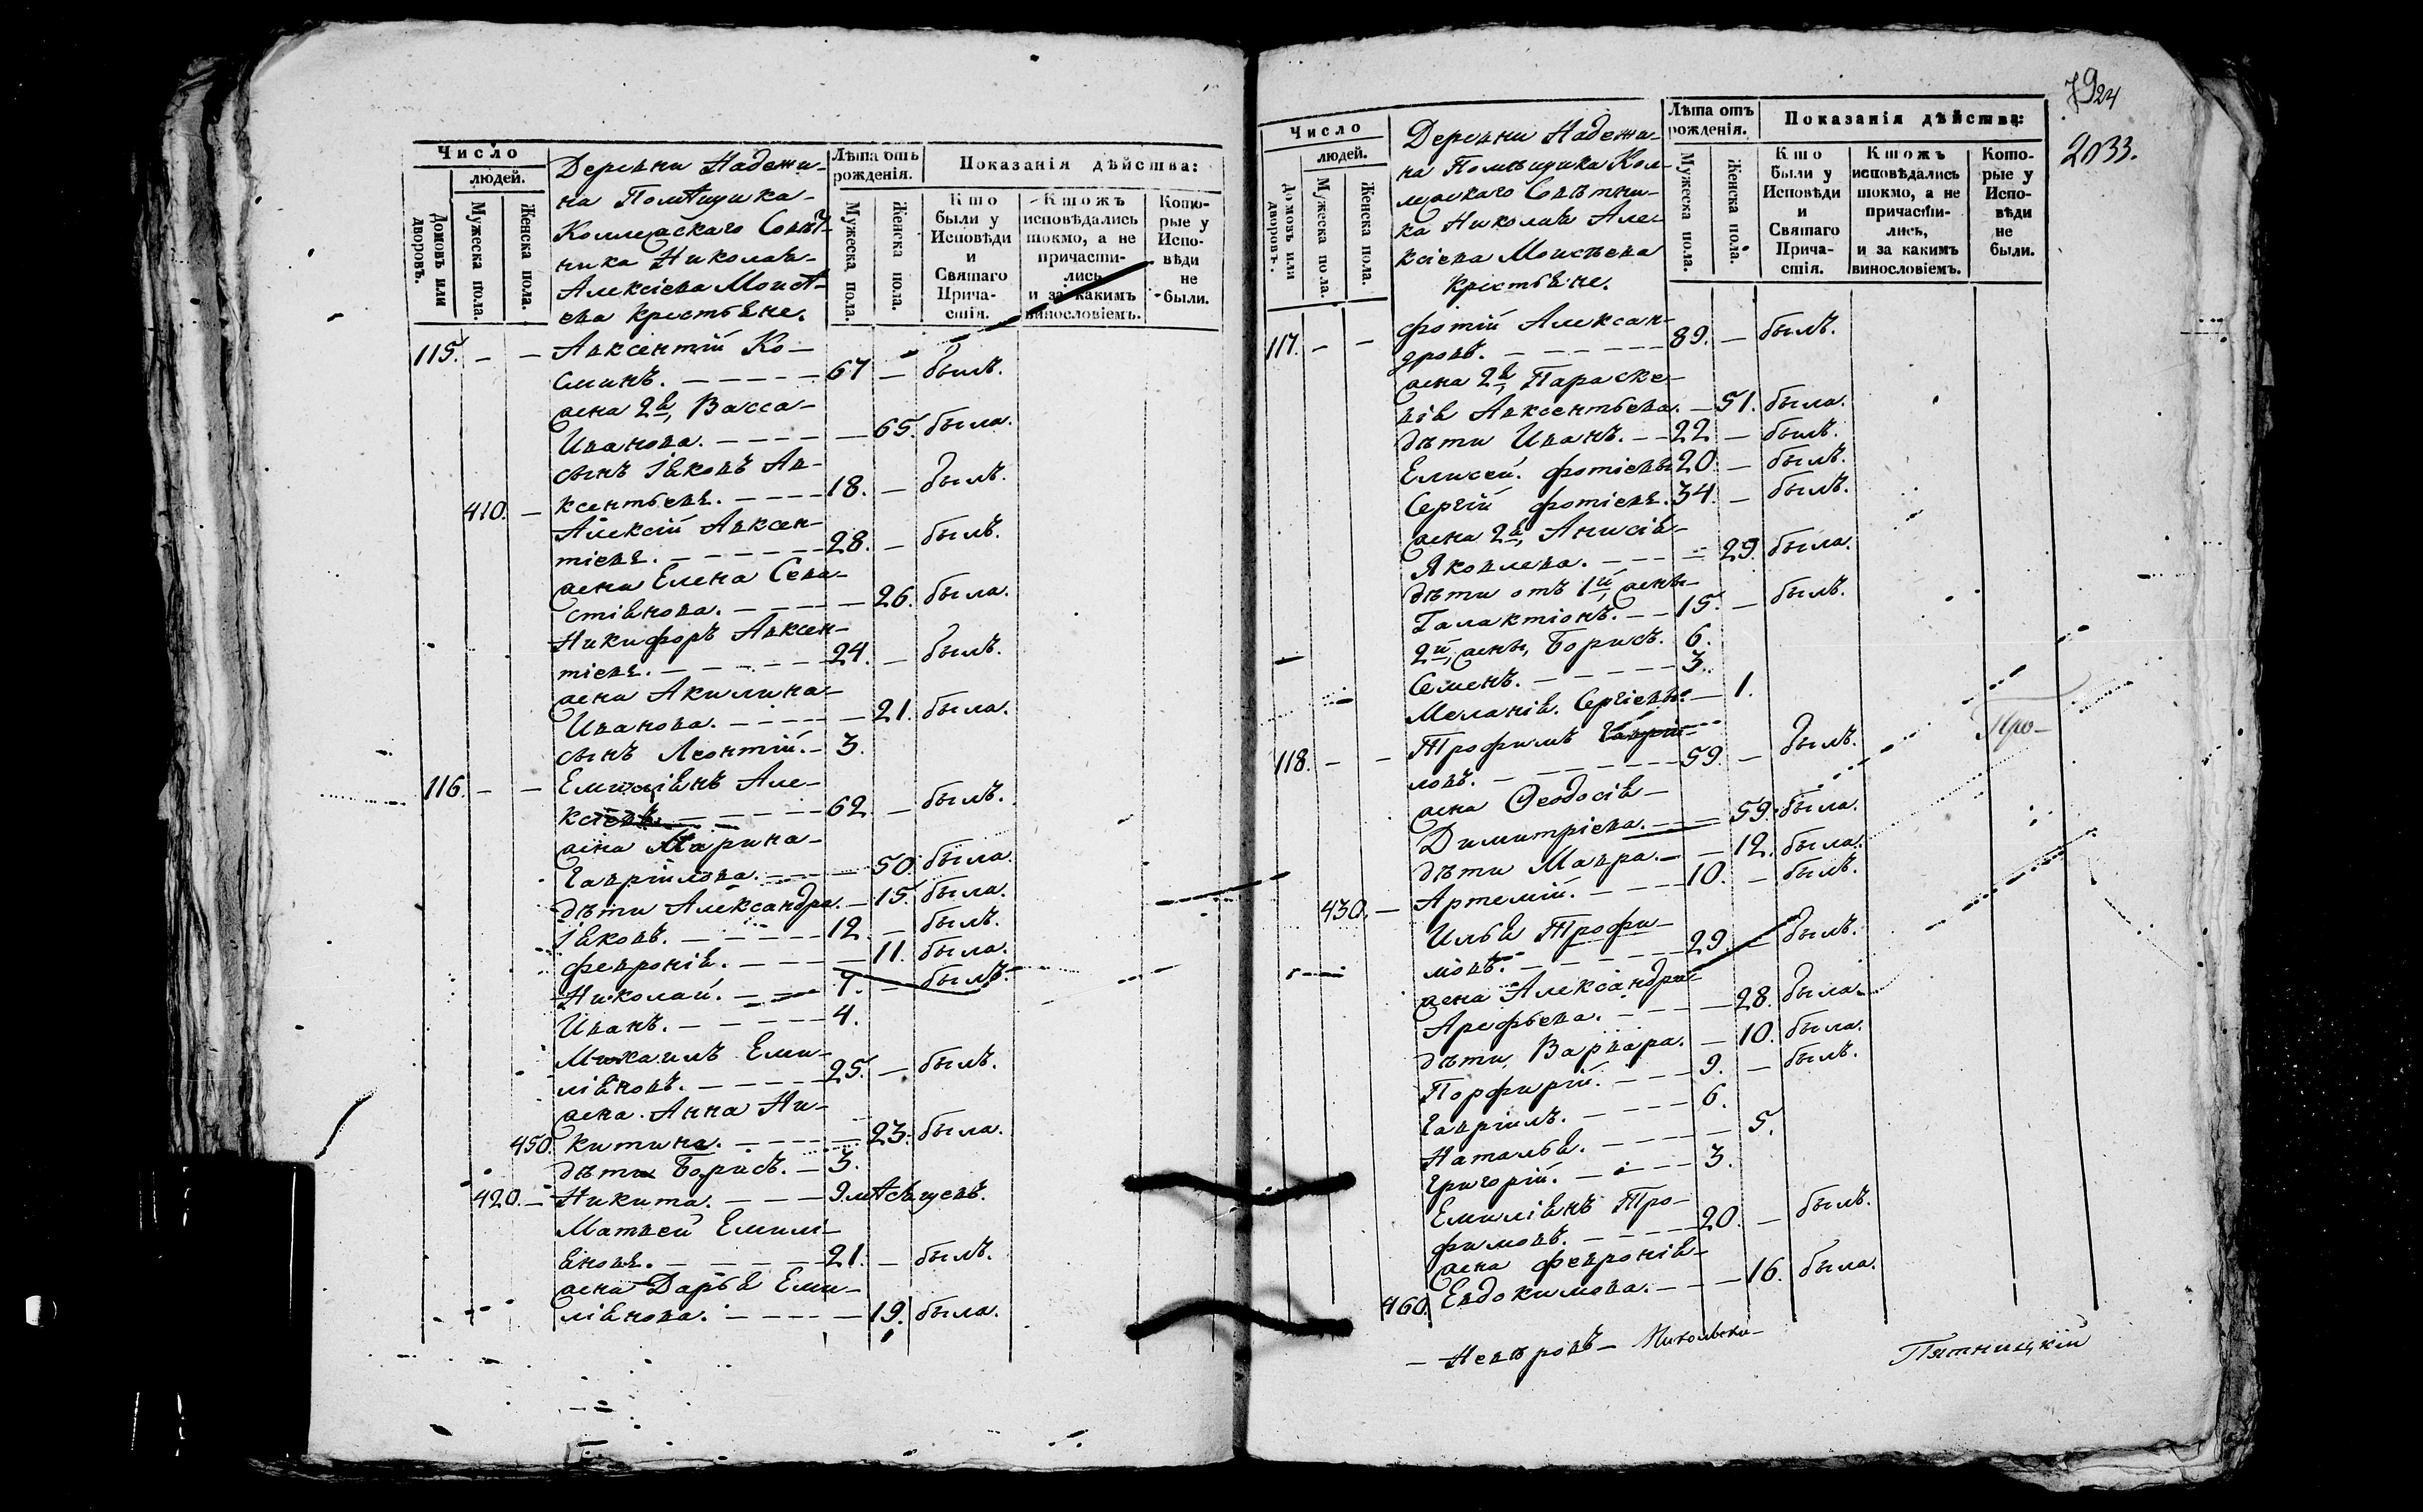 Число
людей.
Домовъ или дворовъ.
Мужеска пола.
Женска пола.
Деревни Надежи-
на Помѣщика
Коллежскаго Совѣт-
ника Николая
Алексіева Моисѣ-
ева крестьяне.
Лѣта отъ
рожденія.
Мужеска пола.
Женска пола.
Показанія дѣйства:
Кто
были у
Исповѣди
и
Святаго
Прича-
стія.
Ктожъ
исповѣдались
токмо, а не
причасти-
лись,
и за какимъ
винословіемъ.
Кото-
рые у
Испо-
вѣди
не
были.
115. - - Авксентій Ко-
сминъ. - 67 - былъ.
жена 2я, Васса
Иванова. - - 65. была.
сынъ Іяковъ Ав-
410. - ксентьевъ. - 18. - былъ.
Алексій Авксен-
тіевъ. - 28. - былъ.
жена Елена Сева-
стіянова. - - 26. была.
Никифоръ Авксен-
тіевъ. - 24. - былъ.
жена Акилина
Иванова. - - 21. была.
сынъ Леонтій. - 3.
116. - - Емиліянъ Але-
ксіевъ. - 62 - былъ.
жена Марина
Гавріилова. - - 50. была.
дѣти Александра. - 15. была.
Іяковъ. - 12. - былъ.
Февронія. - - 11. была.
Николай. - 7. - былъ.
Иванъ. - 4.
Михаилъ Еми-
ліяновъ. - 25. - былъ.
жена Анна Ни-
450. китина. - - 23. была.
дѣти Борисъ. - 3.
420. - Никита. - 9. мѣсяцевъ.
Матвей Емилі-
яновъ. - 21. - былъ.
жена Дарья Еми-
ліянова. - - 19. была.
7924
2033.
Число
людей.
Домовъ или дворовъ.
Мужеска пола.
Женска пола.
Деревни Надежи-
на Помѣщика Кол-
лежскаго Совѣтни-
ка Николая Але-
ксіева Моисѣева
крестьяне.
Лѣта отъ
рожденія.
Мужеска пола.
Женска пола.
Показанія дѣйства:
Кто
были у
Исповѣди
и
Святаго
Прича-
стія.
Ктожъ
исповѣдались
токмо, а не
причасти-
лись,
и за какимъ
винословіемъ.
Кото-
рые у
Испо-
вѣди
не
были.
117. - - Фотій Алексан-
дровъ. - 89. - былъ.
жена 2я, Параске-
вія Авксентьева. - 51. была.
дѣти Иванъ. - 22 - былъ.
Елисей. Фотіевы 20. - былъ.
Сергій Фотіевъ. 34. - былъ.
жена 2я, Анисія
Яковлева. - - 29. была.
дѣти отъ 1й, жены
Галактіонъ. - 15. - былъ.
2й, жены, Борисъ. 6.
Семенъ. - 3.
Меланія. Сергіевы. - 1.
118. - - Трофимъ Гаврі-
ловъ. - 59. - былъ.
жена Ѳеодосія
Димитріева. - - 59. была.
дѣти Мавра. - - 12. была.
430. - Артемій. - 10. - былъ.
Илья Трофи-
мовъ. - 29 - былъ.
жена Александра
Арефьева. - - 28. была.
дѣти, Варвара. - 10. была.
Порфирій. - 9. - былъ.
Гавріилъ. - 6.
Наталья. - - 5.
Григорій. - 3.
Емиліянъ Тро-
фимовъ. - 20. - былъ.
жена Февронія
460. Евдокимова. - - 16. была.
Про-
- Невѣровъ - Никольско-
Пятницкій